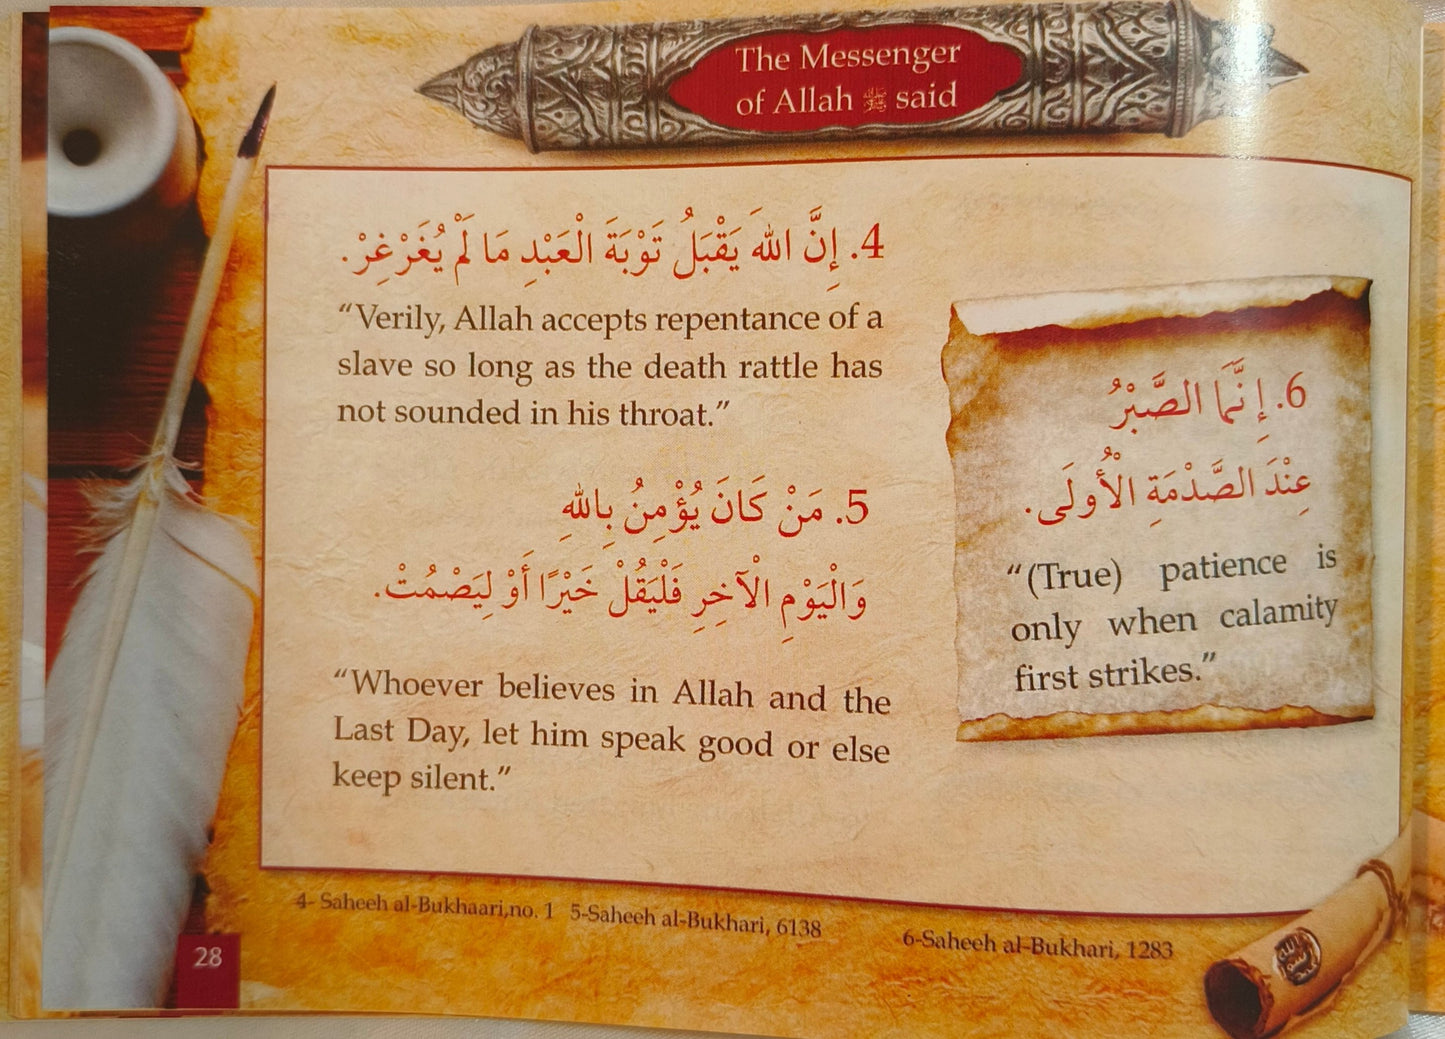 The Messenger
of Allah ﷺ said
4. إِنَّ اللهَ يَقْبَلُ تَوْبَةَ الْعَبْدِ مَا لَمْ يُغَرْغِرْ.
“Verily, Allah accepts repentance of a
slave so long as the death rattle has
not sounded in his throat.”
5. مَنْ كَانَ يُؤْمِنُ بِاللهِ
وَالْيَوْمِ الْآخِرِ فَلْيَقُلْ خَيْرًا أَوْ لِيَصْمُتْ.
“Whoever believes in Allah and the
Last Day, let him speak good or else
keep silent.”
6. إِنَّمَا الصَّبْرُ
عِنْدَ الصَّدْمَةِ الْأُولَى.
“(True) patience is
only when calamity
first strikes.”
4- Saheeh al-Bukhaari,no. 1 5-Saheeh al-Bukhari, 6138
6-Saheeh al-Bukhari, 1283
28